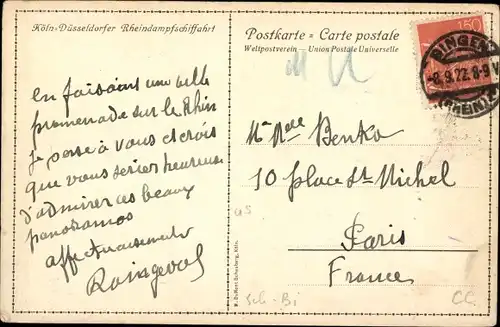 Köln-Düsseldorfer Rheindampfschiffahrt
Postkarte = Carte postale
Weltpostverein — Union Postale Universelle
150
BINGEN
-8.9.22.8-9V
(RHEIN)
en faisant une belle
promenade sur le Rhin
je pense à vous et crois
que vous seriez heureuse
d'admirer ces beaux
panoramas
affectueusement
Mme
Benko
10 place St Michel
Paris
France
Sch-Bi
CC.